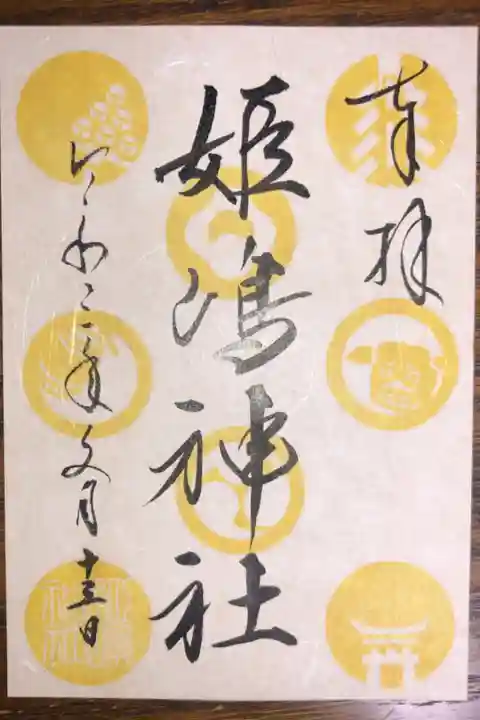 奉拝
姫嶋神社
令和三年文月十三日